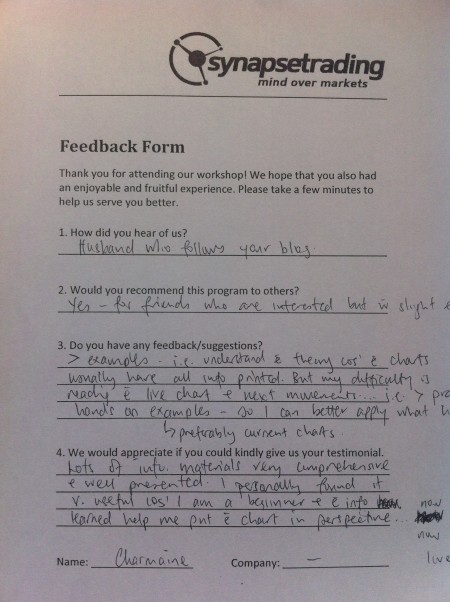 synapsetrading
mind over markets
Feedback Form
Thank you for attending our workshop! We hope that you also had
an enjoyable and fruitful experience. Please take a few minutes to
help us serve you better.
1. How did you hear of us?
Husband who follows your blog.
2. Would you recommend this program to others?
Yes - for friends who are interested but w slight
3. Do you have any feedback/suggestions?
> examples - i.e. understand & theory cos' e charts
usually have all info printed. But my difficulty is
reading e live chart & next movements... i.e. >
hands on examples - so I can better apply what
↳ preferably current charts.
4. We would appreciate if you could kindly give us your testimonial.
Lots of info. materials very comprehensive
& well presented. I personally found it
v. useful cos' I am a beginner & e info now
learned help me put e chart in perspective...
now
live
Name: Charmaine Company: –